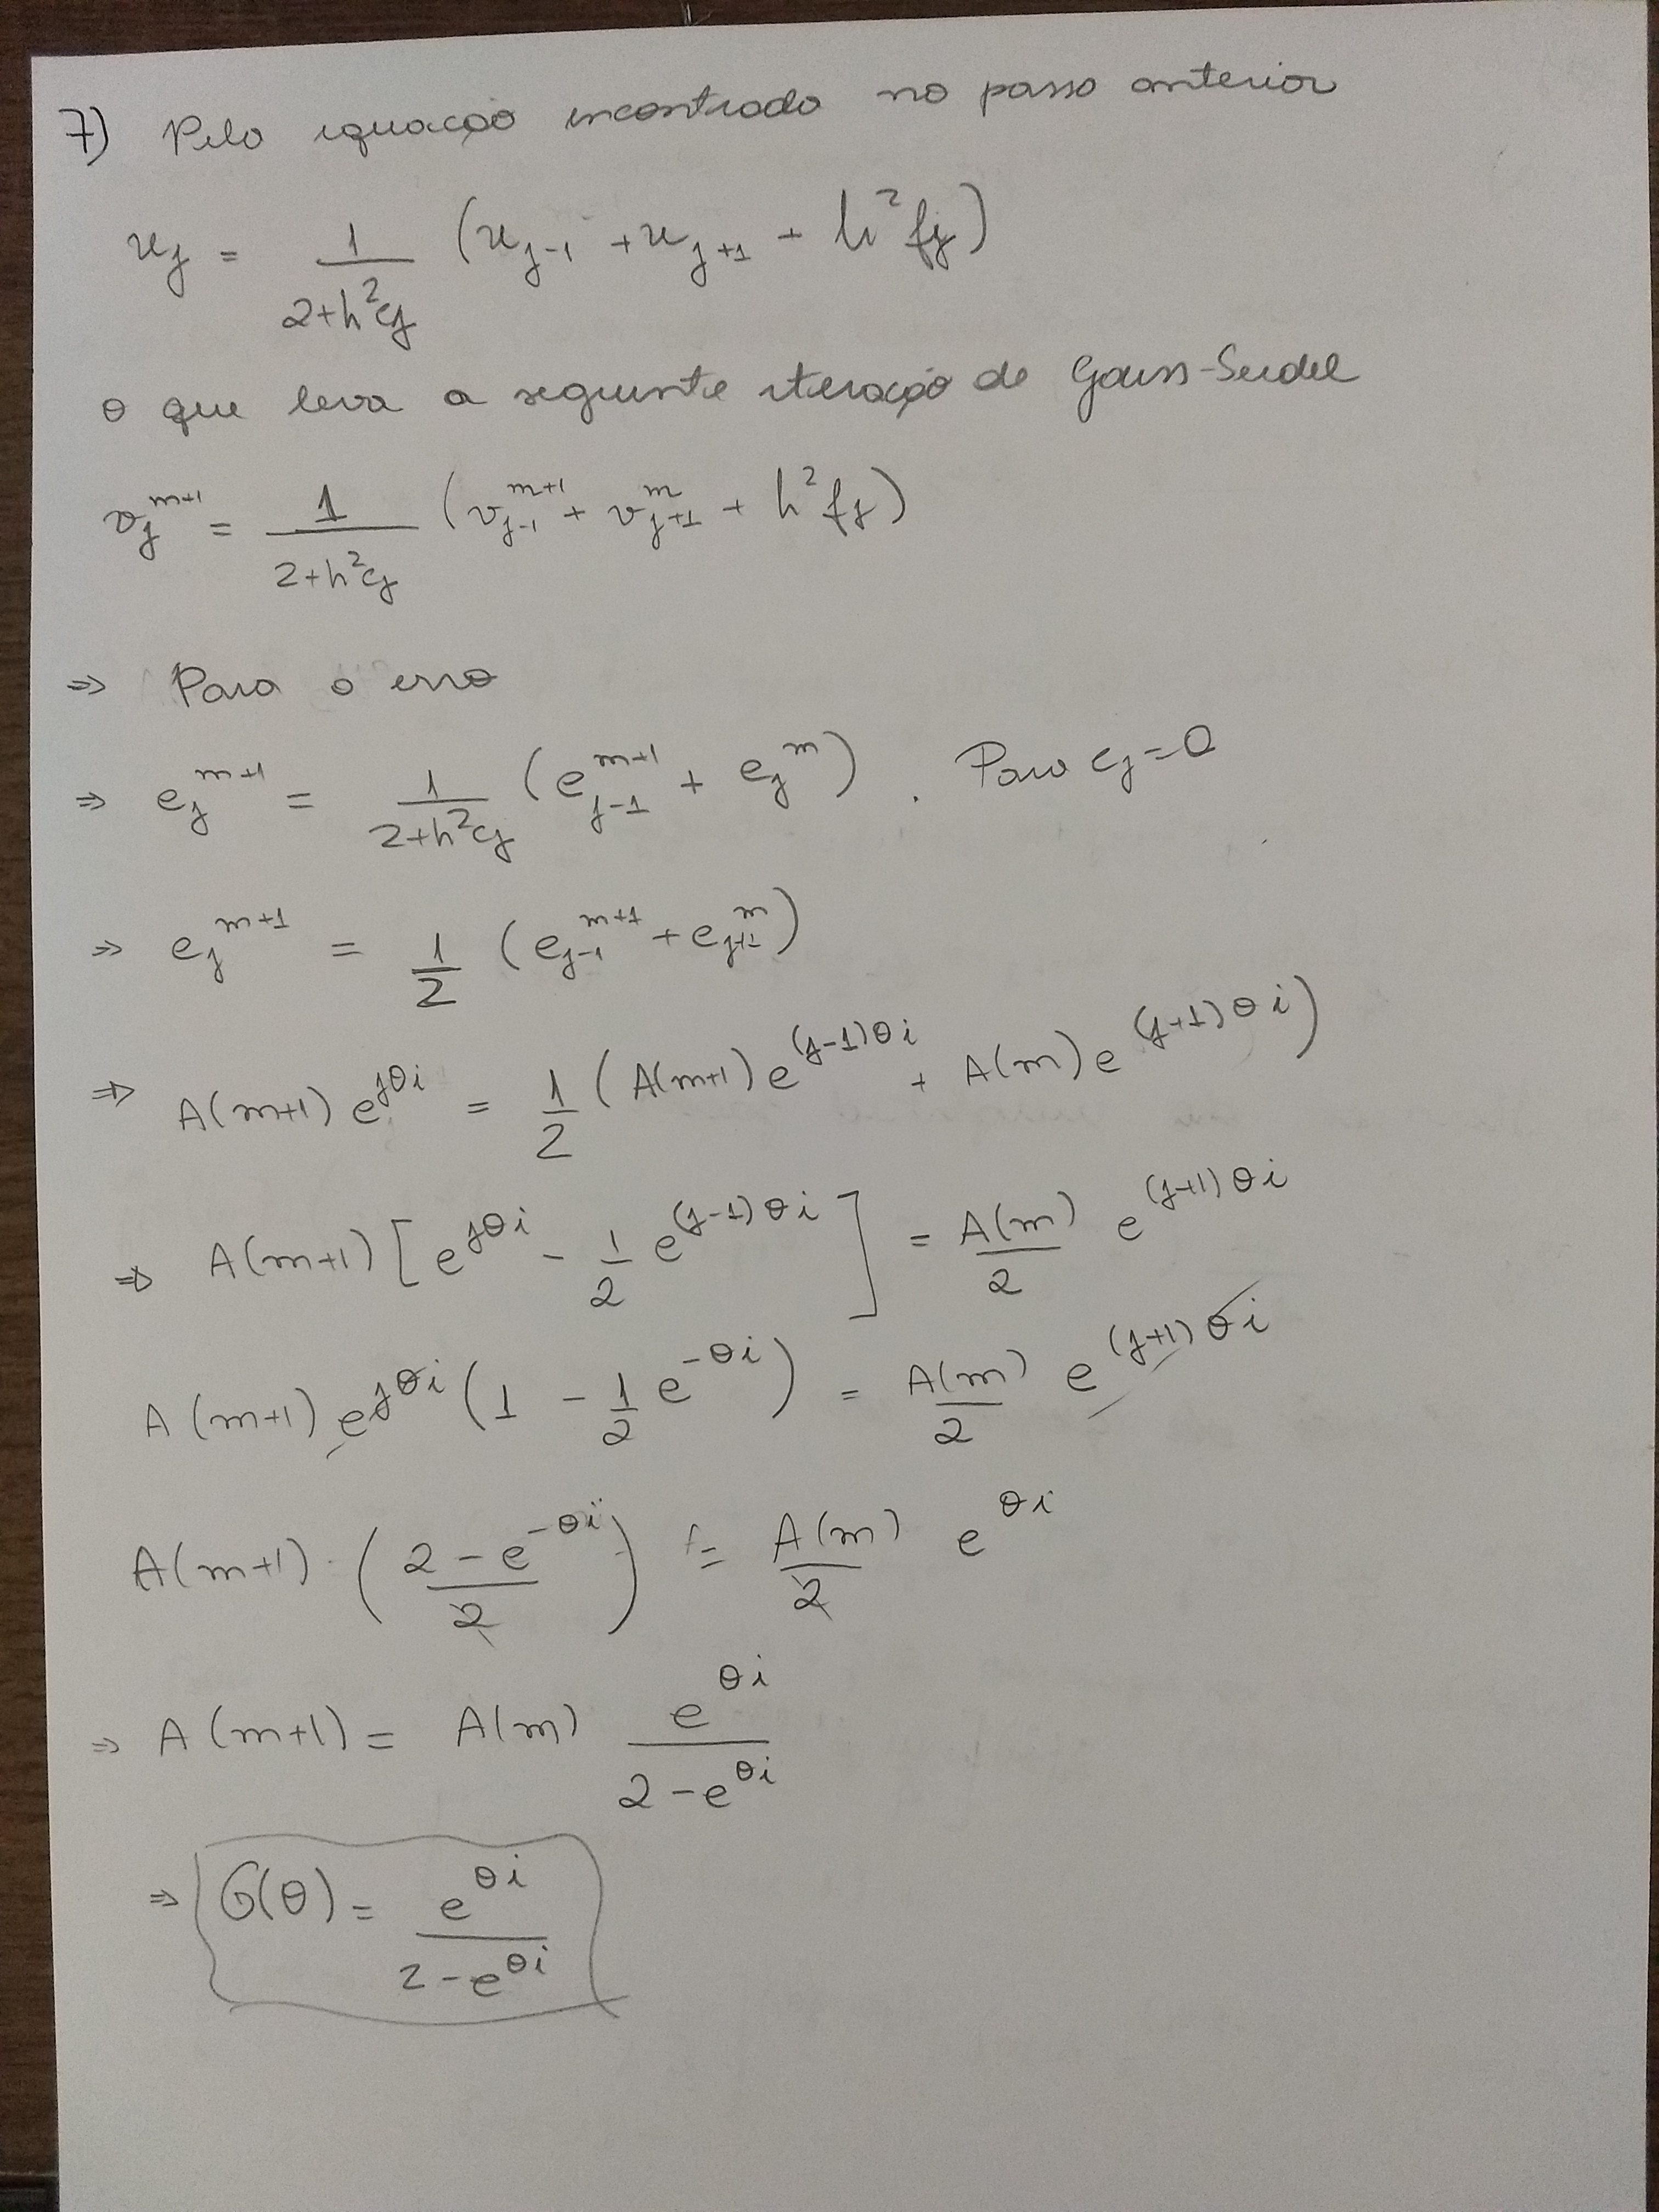 7) Pela equação encontrada no passo anterior
u_j = 1/(2+h²c_j) (u_{j-1} + u_{j+1} + h² f_j)
o que leva a seguinte iteração de Gauss-Seidel
v_j^{m+1} = 1/(2+h²c_j) (v_{j-1}^{m+1} + v_{j+1}^{m} + h² f_j)
⇒ Para o erro
⇒ e_j^{m+1} = 1/(2+h²c_j) (e_{j-1}^{m+1} + e_j^{m}) . Para c_j = 0
⇒ e_j^{m+1} = 1/2 (e_{j-1}^{m+1} + e_{j+1}^{m})
⇒ A(m+1) e^{jθi} = 1/2 (A(m+1) e^{(j-1)θi} + A(m) e^{(j+1)θi})
⇒ A(m+1) [e^{jθi} - 1/2 e^{(j-1)θi}] = A(m)/2 e^{(j+1)θi}
A(m+1) e^{jθi} (1 - 1/2 e^{-θi}) = A(m)/2 e^{(j+1)θi}
A(m+1) · ((2 - e^{-θi})/2) = A(m)/2 e^{θi}
⇒ A(m+1) = A(m) e^{θi}/(2 - e^{θi})
⇒ G(θ) = e^{θi}/(2 - e^{θi})